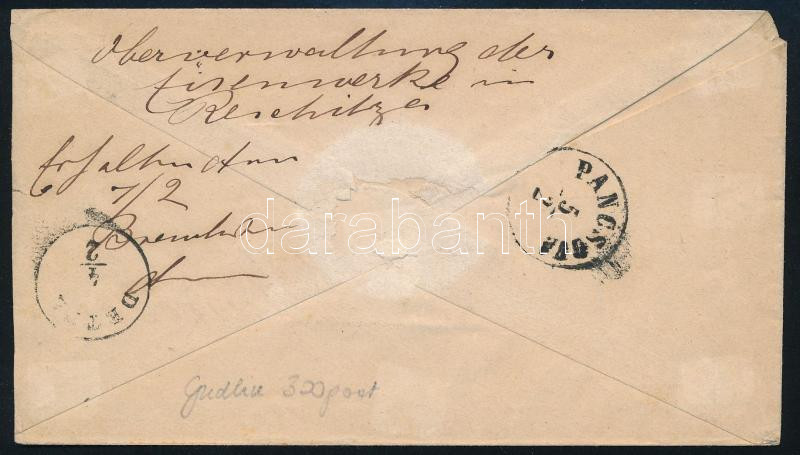 Oberverwaltung der
Eisenwerke in
Reschitza
Erhalten am
7/2
PANCSOVA
5/2
darabanth
4/2
DETTA
Gudlin 300 pont